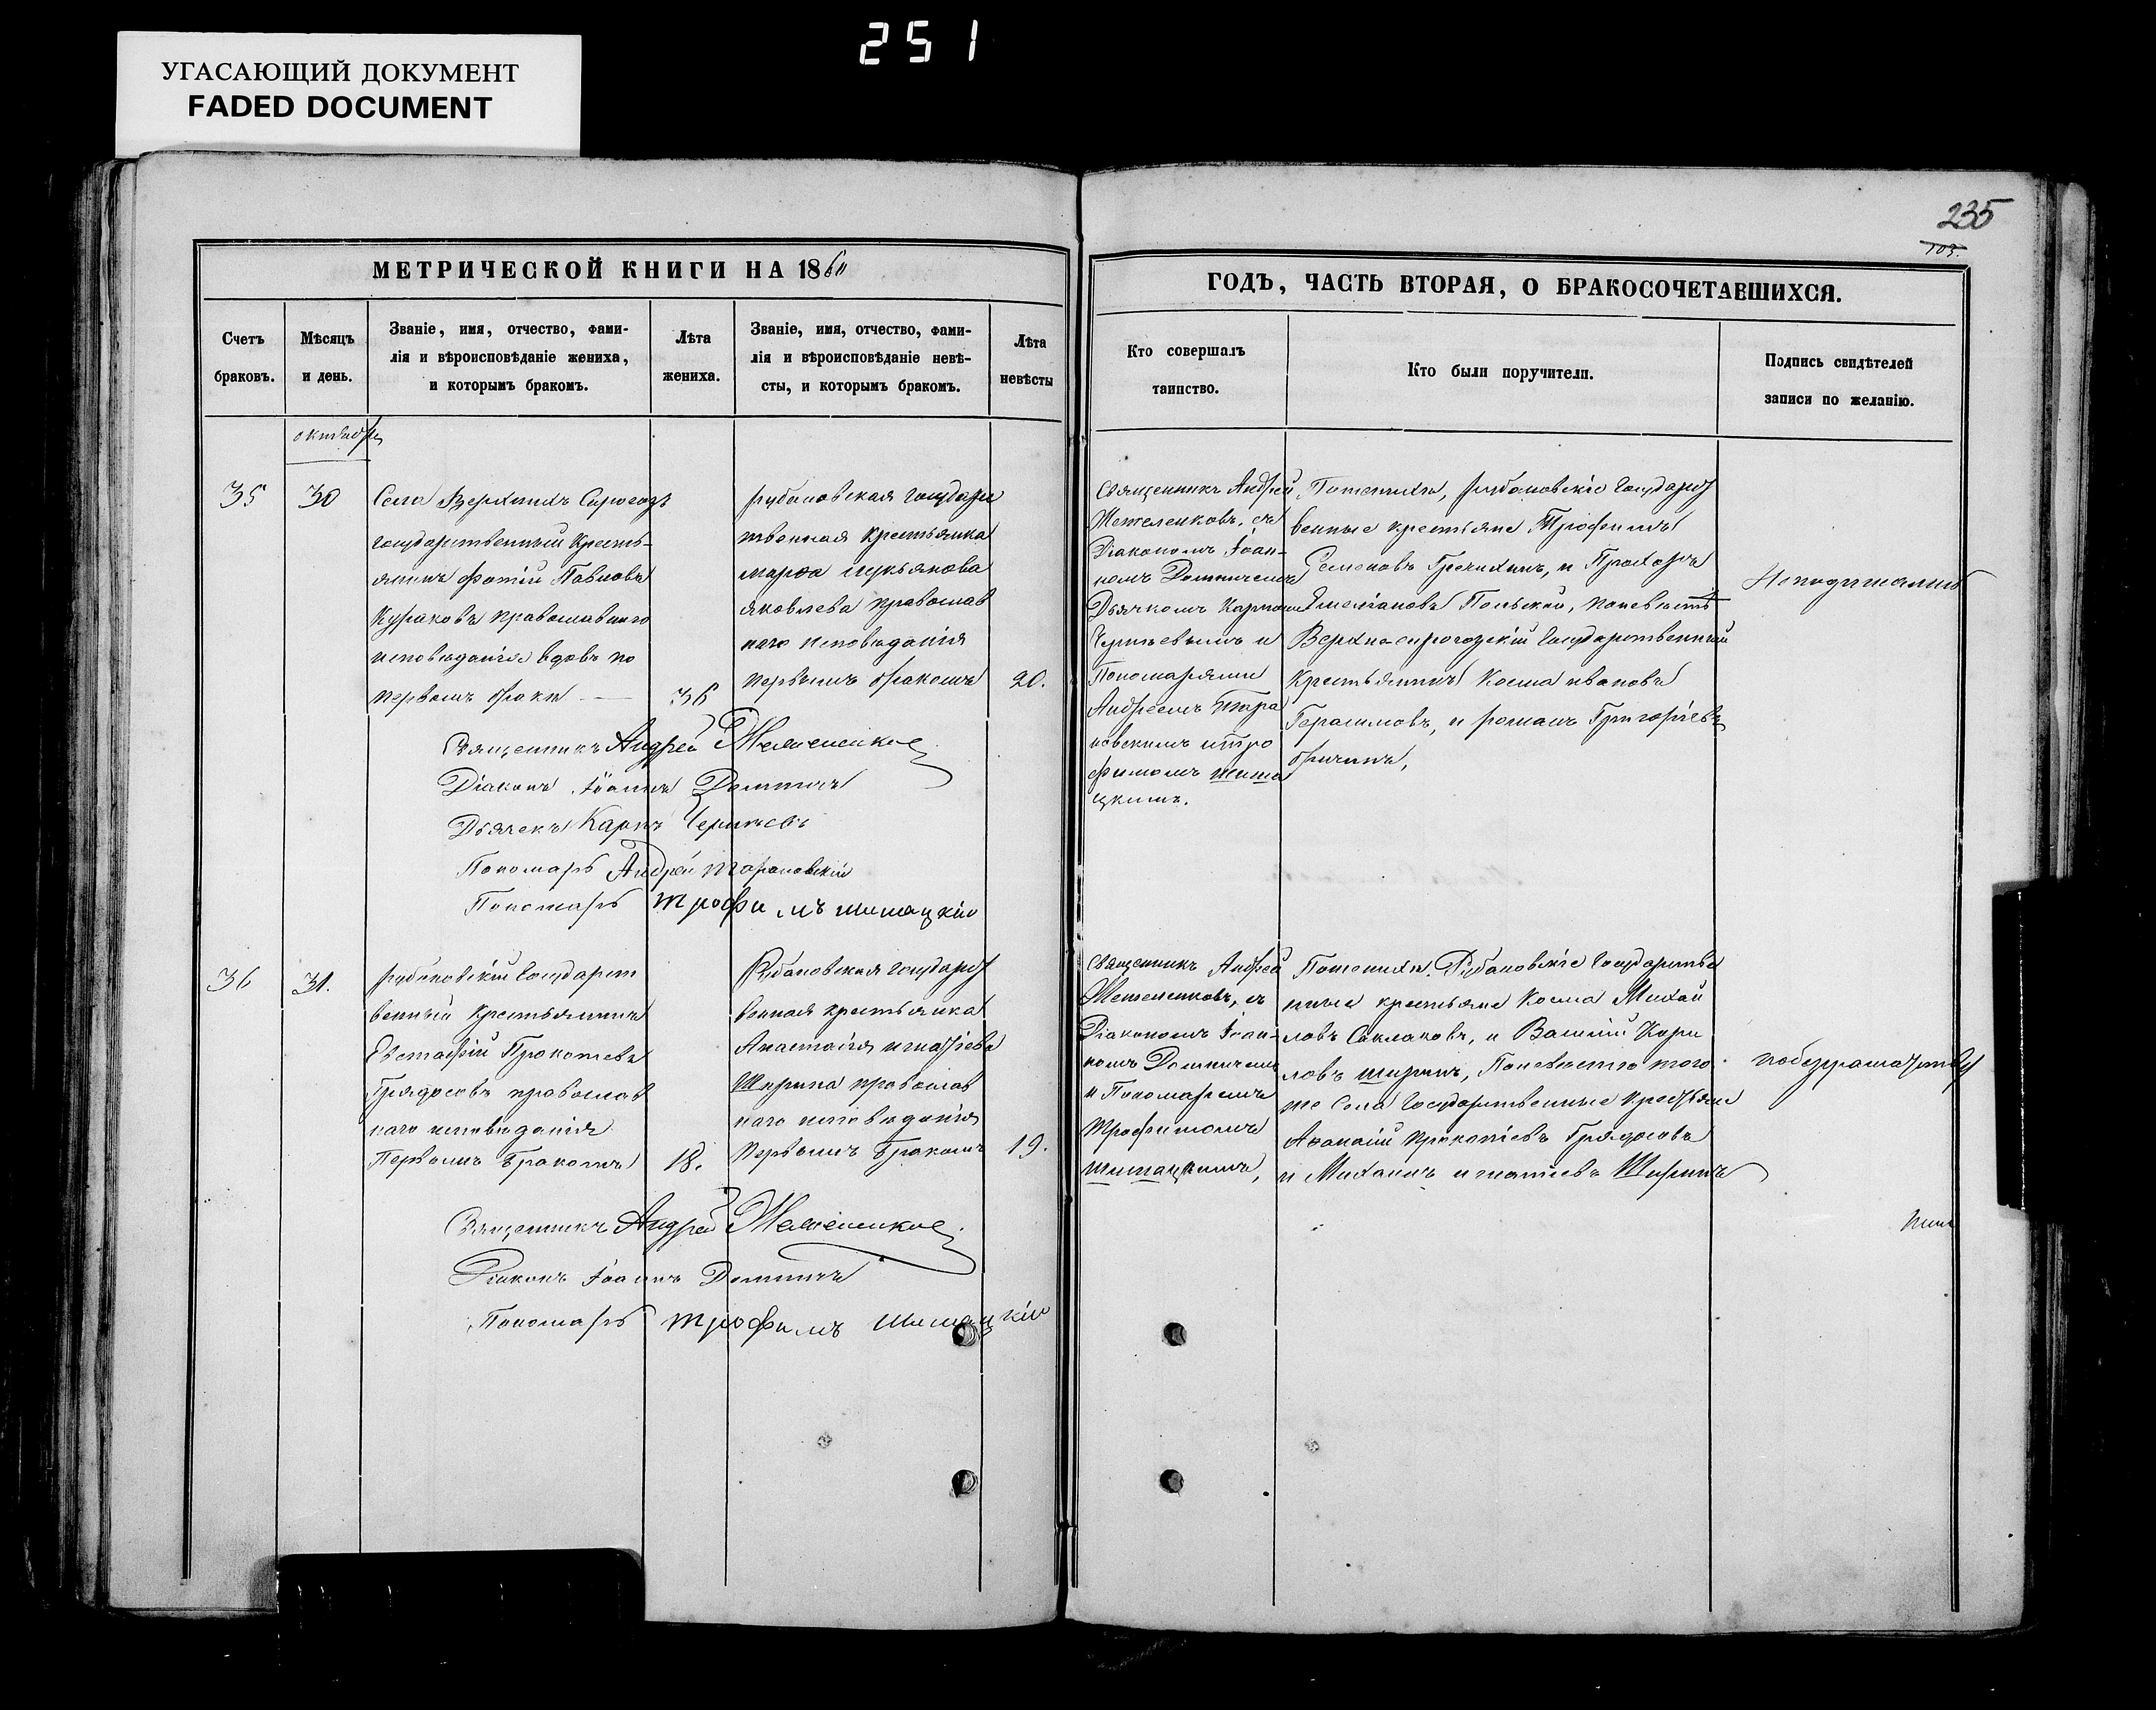 251
УГАСАЮЩИЙ ДОКУМЕНТ
FADED DOCUMENT
235
103.
МЕТРИЧЕСКОЙ КНИГИ НА 1860
ГОДЪ, ЧАСТЬ ВТОРАЯ, О БРАКОСОЧЕТАВШИХСЯ.
Счетъ
браковъ.
Мѣсяцъ
и день.
Званіе, имя, отчество, фами-
лія и вѣроисповѣданіе жениха,
и которымъ бракомъ.
Лѣта
жениха.
Званіе, имя, отчество, фами-
лія и вѣроисповѣданіе невѣ-
сты, и которымъ бракомъ.
Лѣта
невѣсты
Кто совершалъ
таинство.
Кто были поручители.
Подпись свидѣтелей
записи по желанію.
октября
35
30
Села Верхнихъ Сырогозъ
государственный кресть-
янинъ Фотій Павловъ
Кураковъ православнаго
исповѣданія вдовъ по
первомъ браки
36
рубановская государс
твенная крестьянка
марфа лукьянова
яковлева православ
наго исповѣданія
первымъ бракомъ
20.
Священникъ Андрей
съ
Діакономъ Іоан-
номъ
Дьячкомъ Карпомъ
и
Пономарями
Андреемъ Тара
новскимъ итро
фимомъ шиша
цкимъ.
Поженихѣ, рубановскіе Государст
венные крестьяне Трофимъ
Семеновъ и Прохоръ
Емеліановъ поневѣстѣ
Верхнасырогозскій Государственный
Крестьянинъ Косма ивановъ
Герасимовъ, и романъ Григорьевъ
Священникъ Андрей
Діаконъ Іоаннъ
Дьячекъ Карпъ
Пономарь Андрей тарановскій
Пономарь трофимъ шишацкій
36
31.
рубановскій Государст
венный Крестьянинъ
Евстафій Прокопьевъ
православ
наго исповѣданія
Первымъ Бракомъ
18.
Рубановская государст
венная крестьянка
Анастасія игнатіева
Ширина православ
наго исповѣданія
первымъ Бракомъ
19.
Священникъ Андрей
съ
Діакономъ Іоан-
номъ
и Пономаремъ
Трофимомъ
шишацкимъ,
Поженихѣ. Рубановскіе Государстве
нные крестьяне Косма Михай
ловъ и Василій Кири
ловъ ширинъ, Поневѣстѣ того
же села Государственные Крестьяне
Афанасій прокопіевъ
и Михаилъ игнатіевъ Ширинъ
Священникъ Андрей
Діаконъ Іоаннъ
Пономарь трофимъ шишацкій